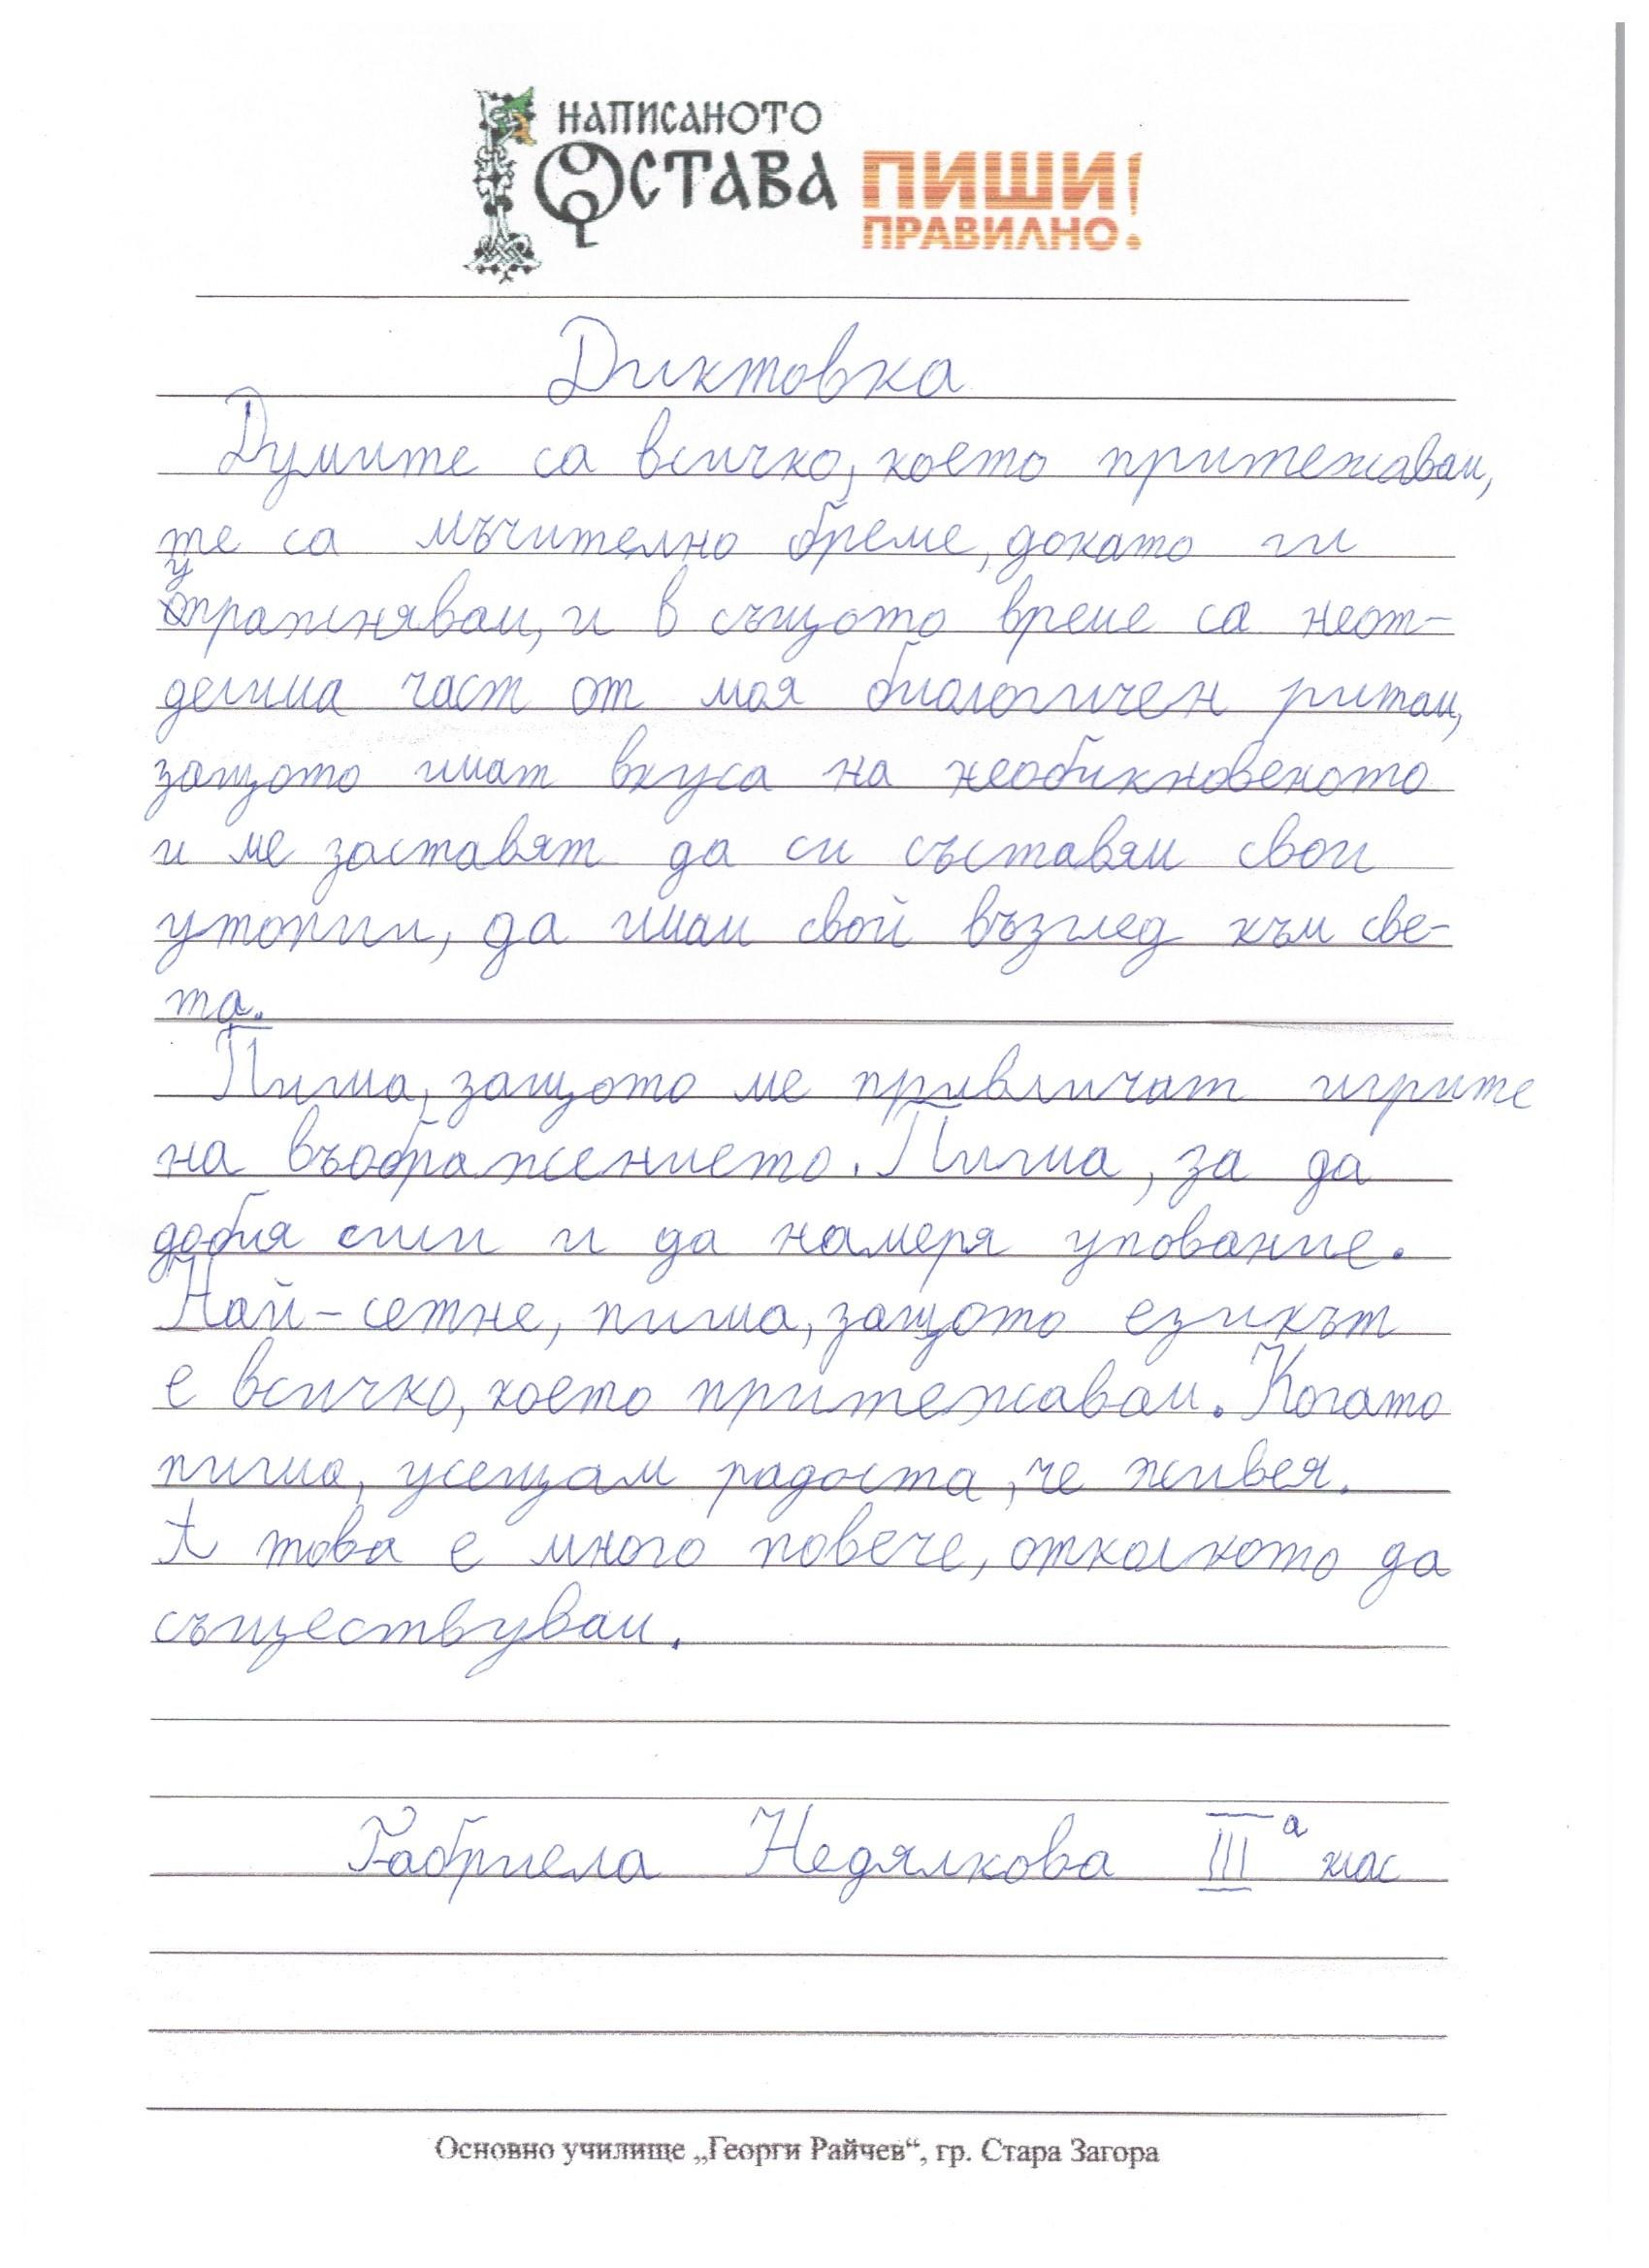 НАПИСАНОТО
ОСТАВА ПИШИ!
ПРАВИЛНО!
Диктовка
Думите са всичко, което притежавам,
те са мъчително бреме, докато ги
упражнявам, и в същото време са неот-
делима част от моя биологичен ритъм,
защото имат вкуса на необикновеното
и ме заставят да си съставям свои
утопии, да имам свой възглед към све-
та.
Пиша, защото ме привличат игрите
на въображението. Пиша, за да
добия сили и да намеря упование.
Най-сетне, пиша, защото езикът
е всичко, което притежавам. Когато
пиша, усещам радоста, че живея.
А това е много повече, отколкото да
съществувам.
Габриела Недялкова III а клас
Основно училище „Георги Райчев“, гр. Стара Загора